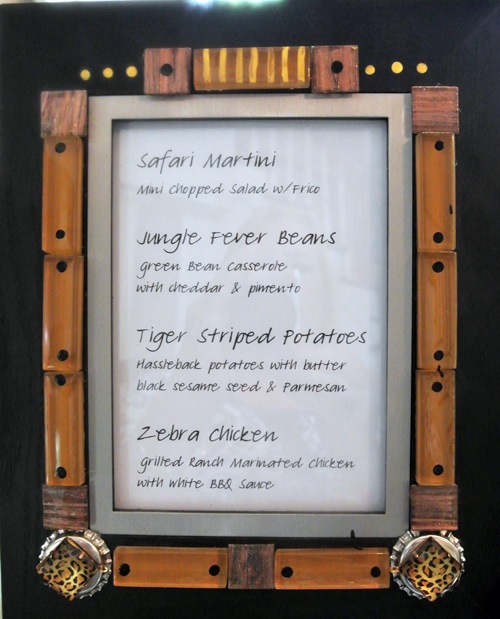 Safari Martini
Mini Chopped Salad w/Frico
Jungle Fever Beans
Green Bean Casserole
with cheddar & pimento
Tiger Striped Potatoes
Hassleback potatoes with butter
black sesame seed & Parmesan
Zebra Chicken
Grilled Ranch Marinated Chicken
with White BBQ Sauce